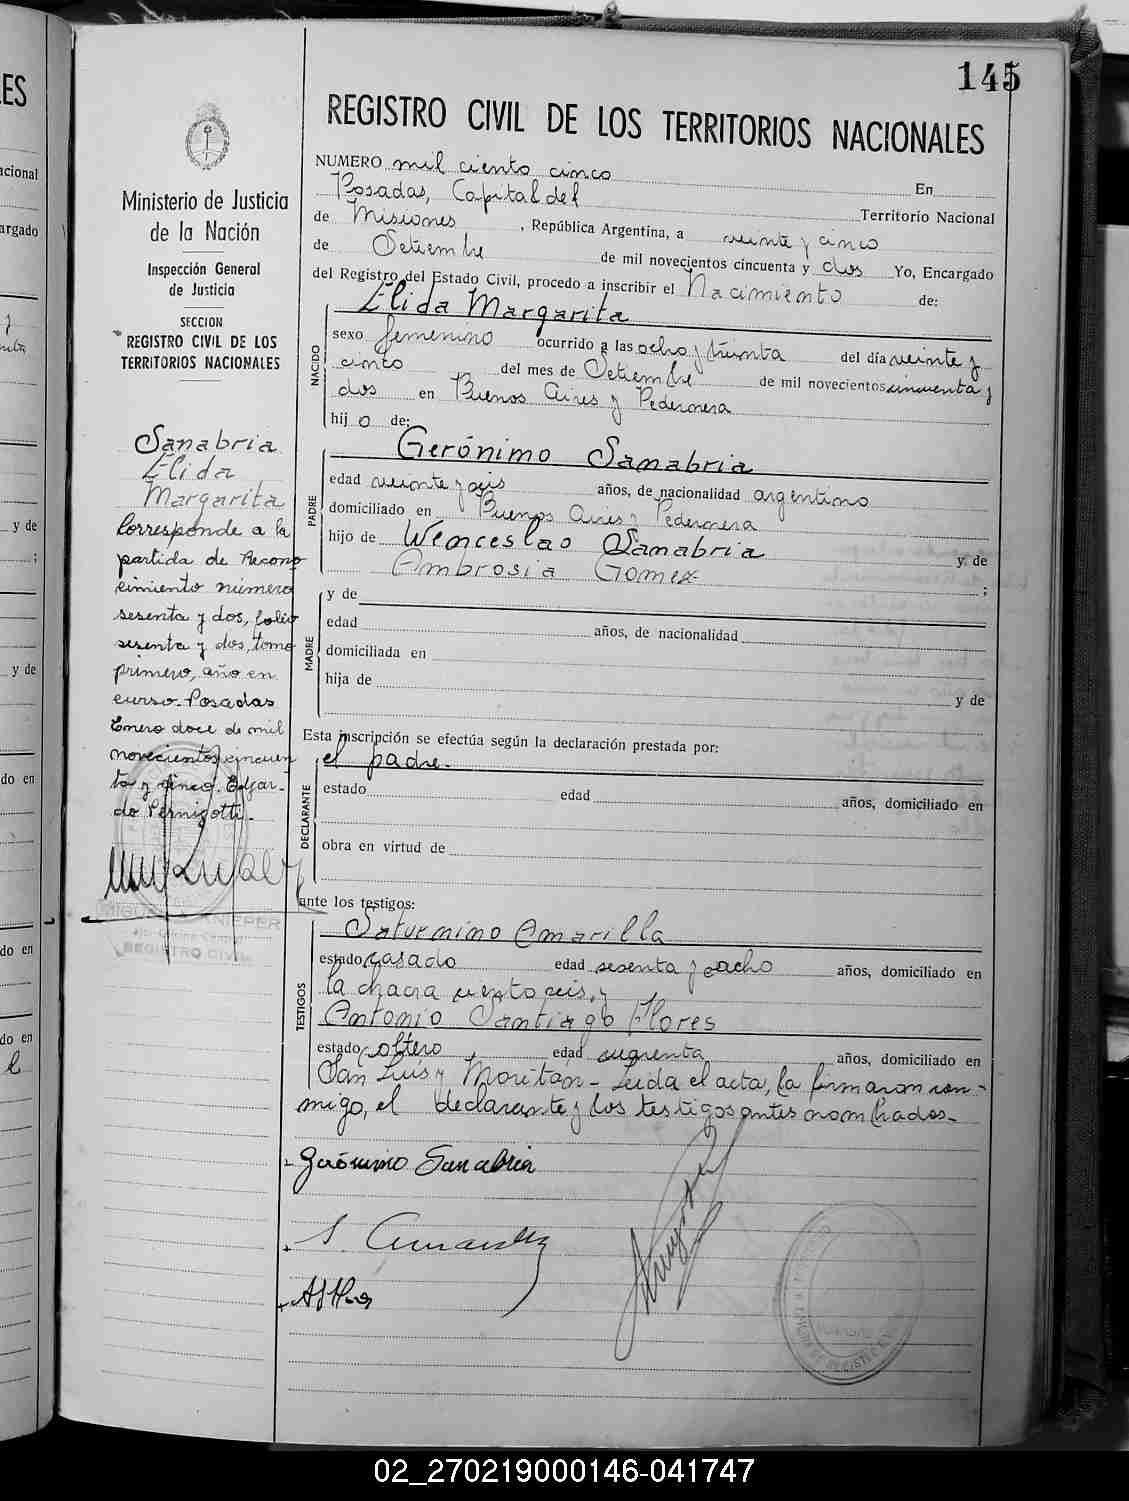 145
REGISTRO CIVIL DE LOS TERRITORIOS NACIONALES
NUMERO mil ciento cinco En
Posadas, Capital del Territorio Nacional
de Misiones, República Argentina, a veinte y cinco
de Setiembre de mil novecientos cincuenta y dos Yo, Encargado
del Registro del Estado Civil, procedo a inscribir el Nacimiento de:
NACIDO
Elida Margarita
sexo femenino ocurrido a las ocho y treinta del día veinte y
cinco del mes de Setiembre de mil novecientos cincuenta y
dos en Buenos Aires y Pedernera
hij o de:
PADRE
Gerónimo Sanabria
edad veinte y seis años, de nacionalidad argentino
domiciliado en Buenos Aires y Pedernera
hijo de Wenceslao Sanabria y de
Ambrosia Gomez ;
MADRE
y de
edad años, de nacionalidad
domiciliada en
hija de y de
Esta inscripción se efectúa según la declaración prestada por:
el padre.
DECLARANTE
estado edad años, domiciliado en
obra en virtud de
ante los testigos:
TESTIGOS
Saturnino Amarilla
estado casado edad sesenta y ocho años, domiciliado en
la chacra ciento seis, y
Antonio Santiago Flores
estado soltero edad cuarenta años, domiciliado en
San Luis y Moritán - Leida el acta, la firmaron con-
migo, el declarante y los testigos antes nombrados.
Gerónimo Sanabria
Ministerio de Justicia
de la Nación
Inspección General
de Justicia
SECCION
REGISTRO CIVIL DE LOS
TERRITORIOS NACIONALES
Sanabria
Elida
Margarita
Corresponde a la
partida de Recono
cimiento número
sesenta y dos, folio
sesenta y dos, tomo
primero, año en
curso. Posadas
Enero doce de mil
novecientos cincuen
ta y cinco. Edgar-
do Pernigotti.
REGISTRO CIVIL
ES
acional
argado
y de
;
y de
do en
do en
do en
02_270219000146-041747